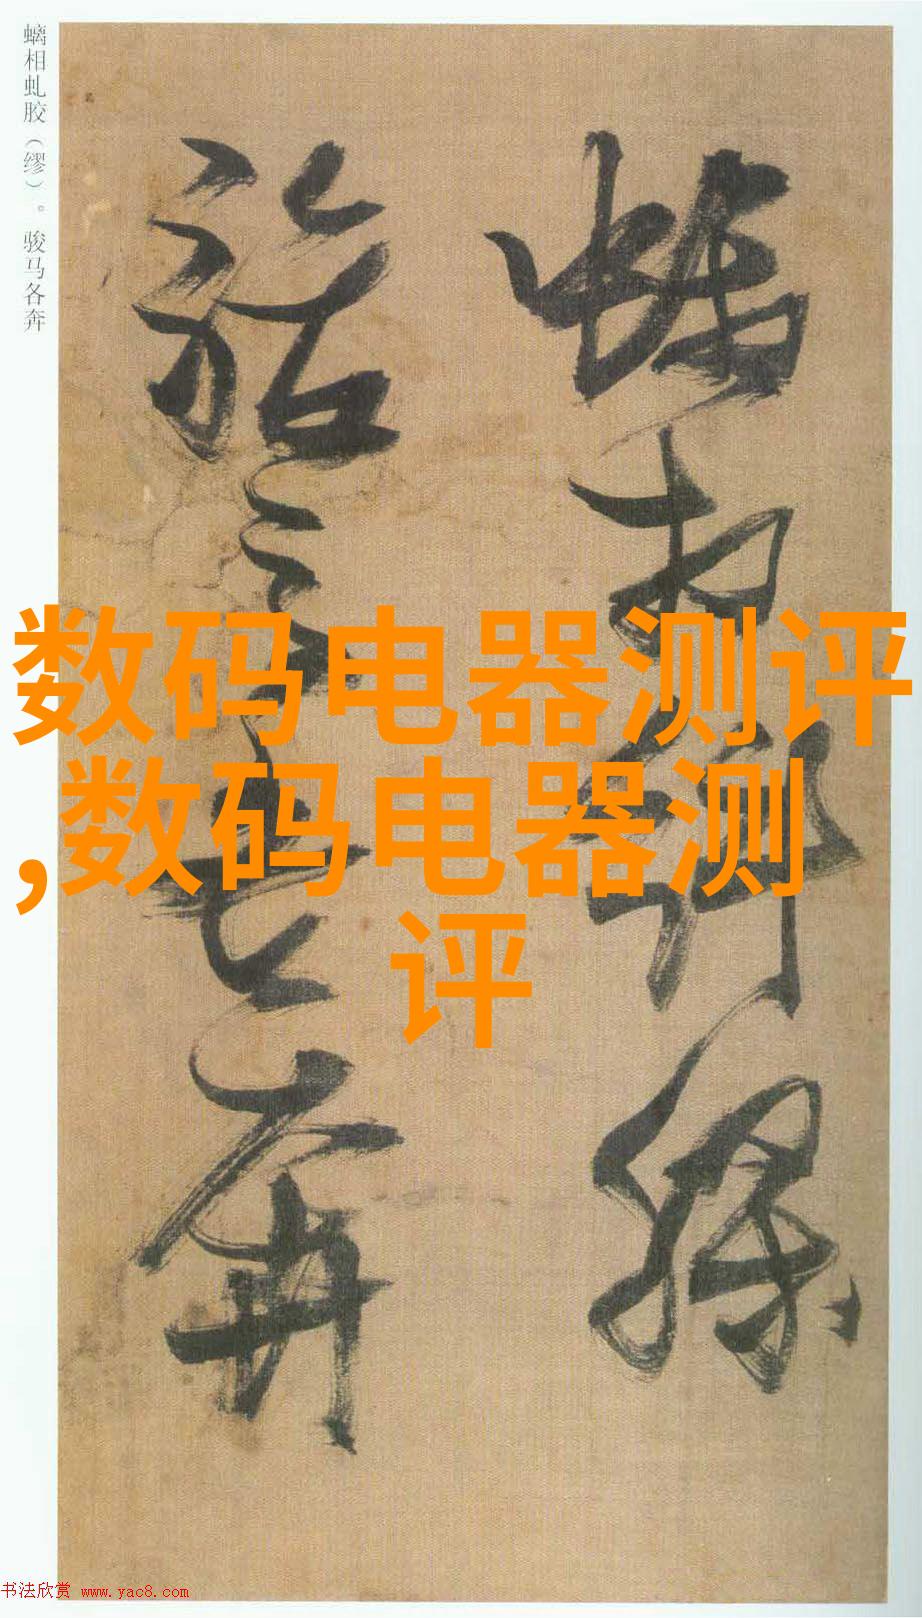 螭相虬胶（缪）。骏马各奔
螭相虬缪
骏马各奔
数码电器测评
,数码电器测
评
书法欣赏 www.yac8.com